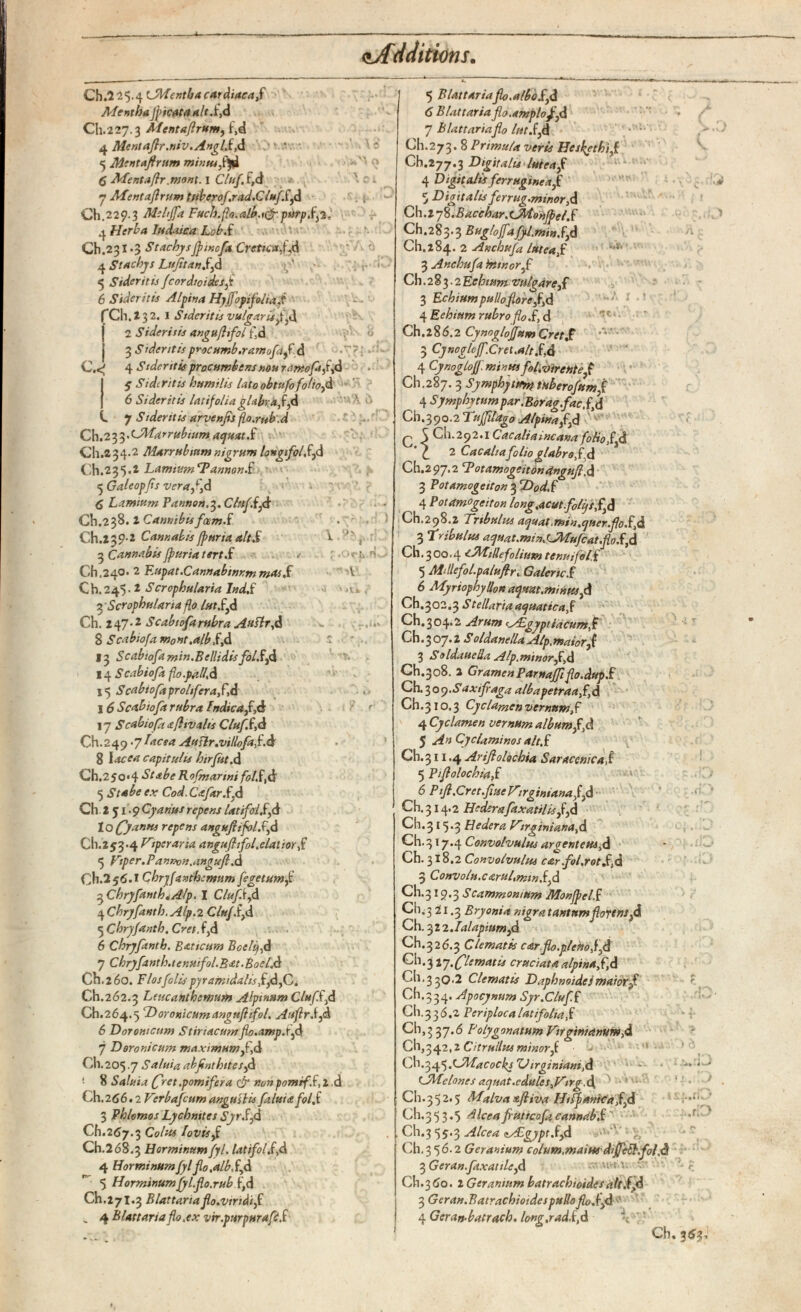 Additions.
Ch.225.4 Mentha cardiaca,ſ
Mentha ſpicata alt.ſ,d
Ch.227.3 Mentaſtrum, ſ,d
4 Mentaſtr.niv.Angl.ſ,d
5 Mentaſtrum minus,ſ,d
6 Mentaſtr.mont. 1 Cluſ.ſ,d
7 Mentaſtrum tuberoſ.rad.Cluſ.ſ,d
Ch.229.3 Meliſſa Fuch.flo.alb.& purp.ſ,2.
4 Herba Iudaica Lob.ſ
Ch.231.3 Stachys ſpinoſa Cretica.ſ,d
4 Stachys Luſitan.ſ,d
5 Sideritis ſcordioides,ſ
6 Sideritis Alpina Hyſſopifolia,ſ
Ch.232. 1 Sideritis vulgaris,ſ,d
2 Sideritis anguſtifol ſ,d
3 Sideritis procumb.ramoſa,ſ d
C. 4 Sideritis procumbens non ramoſa,ſ,d
5 Sideritis humilis lato obtuſo folio,d
6 Sideritis latifolia glabra,ſ,d
7 Sideritis arvenſis flo.rub.d
Ch.233.Marrubium aquat.ſ
Ch.234.2 Marrubium nigrum longifol.ſ,d
Ch.235.2 Lamium Pannon.ſ
5 Galeopſis vera,ſ,d
6 Lamium Pannon.3. Cluſ.ſ,d
Ch.238. 2 Cannibus fœm.ſ
Ch.239.2 Cannabis ſpuria alt.ſ
3 Cannabis ſpuria tert.ſ
Ch.240. 2 Eupat.Cannabinum mas.ſ
Ch.245. 2 Scrophularia Ind.ſ
3 Scrophularia flo lut.ſ,d
Ch. 247.2 Scabioſa rubra Auſtr,d
8 Scabioſa mont.alb.ſ,d
13 Scabioſa min.Bellidis fol.ſ,d
14 Scabioſa flo.pall,d
15 Scabioſa prolifera,ſ,d
16 Scabioſa rubra Indica,ſ,d
17 Scabioſa æſtivalis Cluſ.ſ,d
Ch.249.7 Iacea Auſtr.villoſa,ſ.d
8 Iacea capitulis hirſut.d
Ch.250.4 Stæbe Roſmarini fol.ſ,d
5 Stæbe ex Cod.Cæſar.ſ,d
Ch.251.9 Cyanus repens latifol.ſ,d
10 Cyanus repens anguſtifol.ſ,d
Ch.253.4 Viperaria anguſtifol.elatior,ſ
5 Viper.Pannon.anguſt.d
Ch.256.1 Chryſanthemum ſegetum,ſ
3 Chryſanth.Alp. 1 Cluſ.ſ,d
4 Chryſanth. Alp.2 Cluſ.ſ,d
5 Chryſanth. Cret.ſ,d
6 Chryſanth. Bæticum Boelij,d
7 Chryſanth.tenuifol.Bæt.Boel.d
Ch.260. Flos ſolis pyramidalis,ſ,d,C.
Ch.262.3 Leucanthemum Alpinum Cluſ.ſ,d
Ch.264.5 Doronicum anguſtifol. Auſtr.ſ,d
6 Doronicum Stiriacum flo.amp.ſ,d
7 Doronicum maximum,ſ,d
Ch.205.7 Saluia abſinthites,d
8 Saluia Cret.pomifera & non pomif.ſ,2.d
Ch.266.2 Verbaſcum anguſtis ſaluiæ fol.ſ
3 Phlomos Lychnites Syr.ſ,d
Ch.267.3 Colus Iovis,ſ
Ch.268.3 Horminum ſyl. latifol.ſ,d
4 Horminum ſyl flo.alb.ſ,d
5 Horminum ſyl.flo.rub ſ,d
Ch.271.3 Blattaria flo.viridi,ſ
4 Blattaria flo.ex vir.purpuraſc.ſ
5 Blattaria flo.albo.ſ,d
6 Blattaria flo.amplo,ſ,d
7 Blattaria flo lut.ſ,d
Ch.273. 8 Primula veris Hesketbi,ſ
Ch.277.3 Digitalis lutea,ſ
4 Digitalis ferruginea,ſ
5 Digitalis ferrug.minor,d
Ch.278.Bacchar.Monſpel.ſ
Ch.283.3 Bugloſſa ſyl.min.ſ,d
Ch.284. 2 Anchuſa lutea,ſ
3 Anchuſa minor,ſ
Ch.283.2 Echium vulgare,ſ
3 Echium pullo flore,ſ,d
4 Echium rubro flo.ſ, d
Ch.286.2 Cynogloſſum Cret.ſ
3 Cynogloſſ.Cret.alt.ſ,d
4 Cynogloſſ.minus fol.virente,ſ
Ch.287. 3 Symphytum tuberoſum,ſ
4 Symphytum par.Borag.fac.ſ,d
Ch.390.2 Tuſſilago Alpina,ſ,d
C Ch.292.1 Cacalia incana folio,ſ,d
2 Cacalia folio glabro,ſ,d
Ch.297.2 Potamogeiton anguſt.d
3 Potamogeiton 3 Dod.ſ
4 Potamogeiton long.acut.folijs,ſ,d
Ch.298.2 Tribulus aquat.min.quer.flo.ſ,d
3 Tribulus aquat.min.Muſcat.flo.ſ,d
Ch.300.4 Millefolium tenuifol.ſ
5 Millefol.paluſtr. Galeric.ſ
6 Myriophyllon aquat.minus,d
Ch.302.3 Stellaria aquatica,ſ
Ch.304.2 Arum Ægyptiacum,ſ
Ch.307.2 Soldanella Alp.maior,ſ
3 Soldanella Alp.minor,ſ,d
Ch.308. 2 Gramen Parnaſſi flo.dup.ſ
Ch.309.Saxifraga alba petræa,ſ,d
Ch.310.3 Cyclamen vernum,ſ
4 Cyclamen vernum album,ſ,d
5 An Cyclaminos alt.ſ
Ch.311.4 Ariſtolochia Saracenica,ſ
5 Piſtolochia,ſ
6 Piſt.Cret.ſiue Virginiana,ſ,d
Ch.314.2 Hedera ſaxatilis,ſ,d
Ch.315.3 Hedera Virginiana,d
Ch.317.4 Convolvulus argenteus,d
Ch. 318.2 Convolvulus cær.fol.rot.ſ,d
3 Convolu.cærul.min.ſ,d
Ch.319.3 Scammonium Monſpel.ſ
Ch.321.3 Bryonia nigra tantum florens,d
Ch. 322.Ialapium,d
Ch.326.3 Clematis cær.flo.pleno,ſ,d
Ch.327.Clematis cruciata alpina,ſ,d
Ch.330.2 Clematis Daphnoides maior,ſ
Ch.334. Apocynum Syr.Cluſ.ſ
Ch.336.2 Periploca latifolia,ſ
Ch,337.6 Polygonatum Virginianum,d
Ch,342.2 Citrullus minor,ſ
Ch.345.Macocks Virginiani,d
Melones aquat.edules,Virg.d
Ch.352.5 Malva æſtiva Hiſpanica,ſ,d
Ch.353.5 Alcea fruticoſa cannab.ſ
Ch.355.3 Alcea Ægypt.ſ,d
Ch.356.2 Geranium colum.maius diſſect.fol.d
3 Geran.ſaxatile,d
Ch.360. 2 Geranium batrachioides alt.ſ,d
3 Geran.Batrachioides pullo flo.ſ,d
4 Geran.batrach. long.rad.ſ,d
Ch. 363.